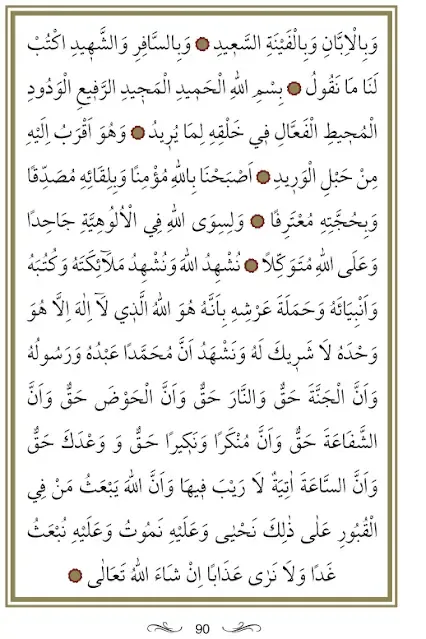 وَبِالْاِبَّانِ وَبِالْفَيْنَةِ السَّعِيدِ ۞ وَبِالسَّافِرِ وَالشَّهِيدِ اكْتُبْ
لَنَا مَا نَقُولُ ۞ بِسْمِ اللهِ الْحَمِيدِ الْمَجِيدِ الرَّفِيعِ الْوَدُودِ
الْمُحِيطِ الْفَعَّالِ فِي خَلْقِهِ لِمَا يُرِيدُ ۞ وَهُوَ اَقْرَبُ اِلَيْهِ
مِنْ حَبْلِ الْوَرِيدِ ۞ اَصْبَحْنَا بِاللهِ مُؤْمِنًا وَبِلِقَائِهِ مُصَدِّقًا
وَبِحُجَّتِهِ مُعْتَرِفًا ۞ وَلِسِوَى اللهِ فِي الْاُلُوهِيَّةِ جَاحِدًا
وَعَلَى اللهِ مُتَوَكِّلًا ۞ نُشْهِدُ اللهَ وَنُشْهِدُ مَلَآئِكَتَهُ وَكُتُبَهُ
وَاَنْبِيَائَهُ وَحَمَلَةَ عَرْشِهِ بِاَنَّهُ هُوَ اللهُ الَّذِي لَآ اِلٰهَ اِلَّا هُوَ
وَحْدَهُ لَا شَرِيكَ لَهُ وَنَشْهَدُ اَنَّ مُحَمَّدًا عَبْدُهُ وَرَسُولُهُ
وَاَنَّ الْجَنَّةَ حَقٌّ وَالنَّارَ حَقٌّ وَاَنَّ الْحَوْضَ حَقٌّ وَاَنَّ
الشَّفَاعَةَ حَقٌّ وَاَنَّ مُنْكَرًا وَنَكِيرًا حَقٌّ وَ وَعْدَكَ حَقٌّ
وَاَنَّ السَّاعَةَ اٰتِيَةٌ لَا رَيْبَ فِيهَا وَاَنَّ اللهَ يَبْعَثُ مَنْ فِي
الْقُبُورِ عَلٰى ذٰلِكَ نَحْيٰى وَعَلَيْهِ نَمُوتُ وَعَلَيْهِ نُبْعَثُ
غَدًا وَلَا نَرٰى عَذَابًا اِنْ شَاءَ اللهُ تَعَالٰى ۞
90